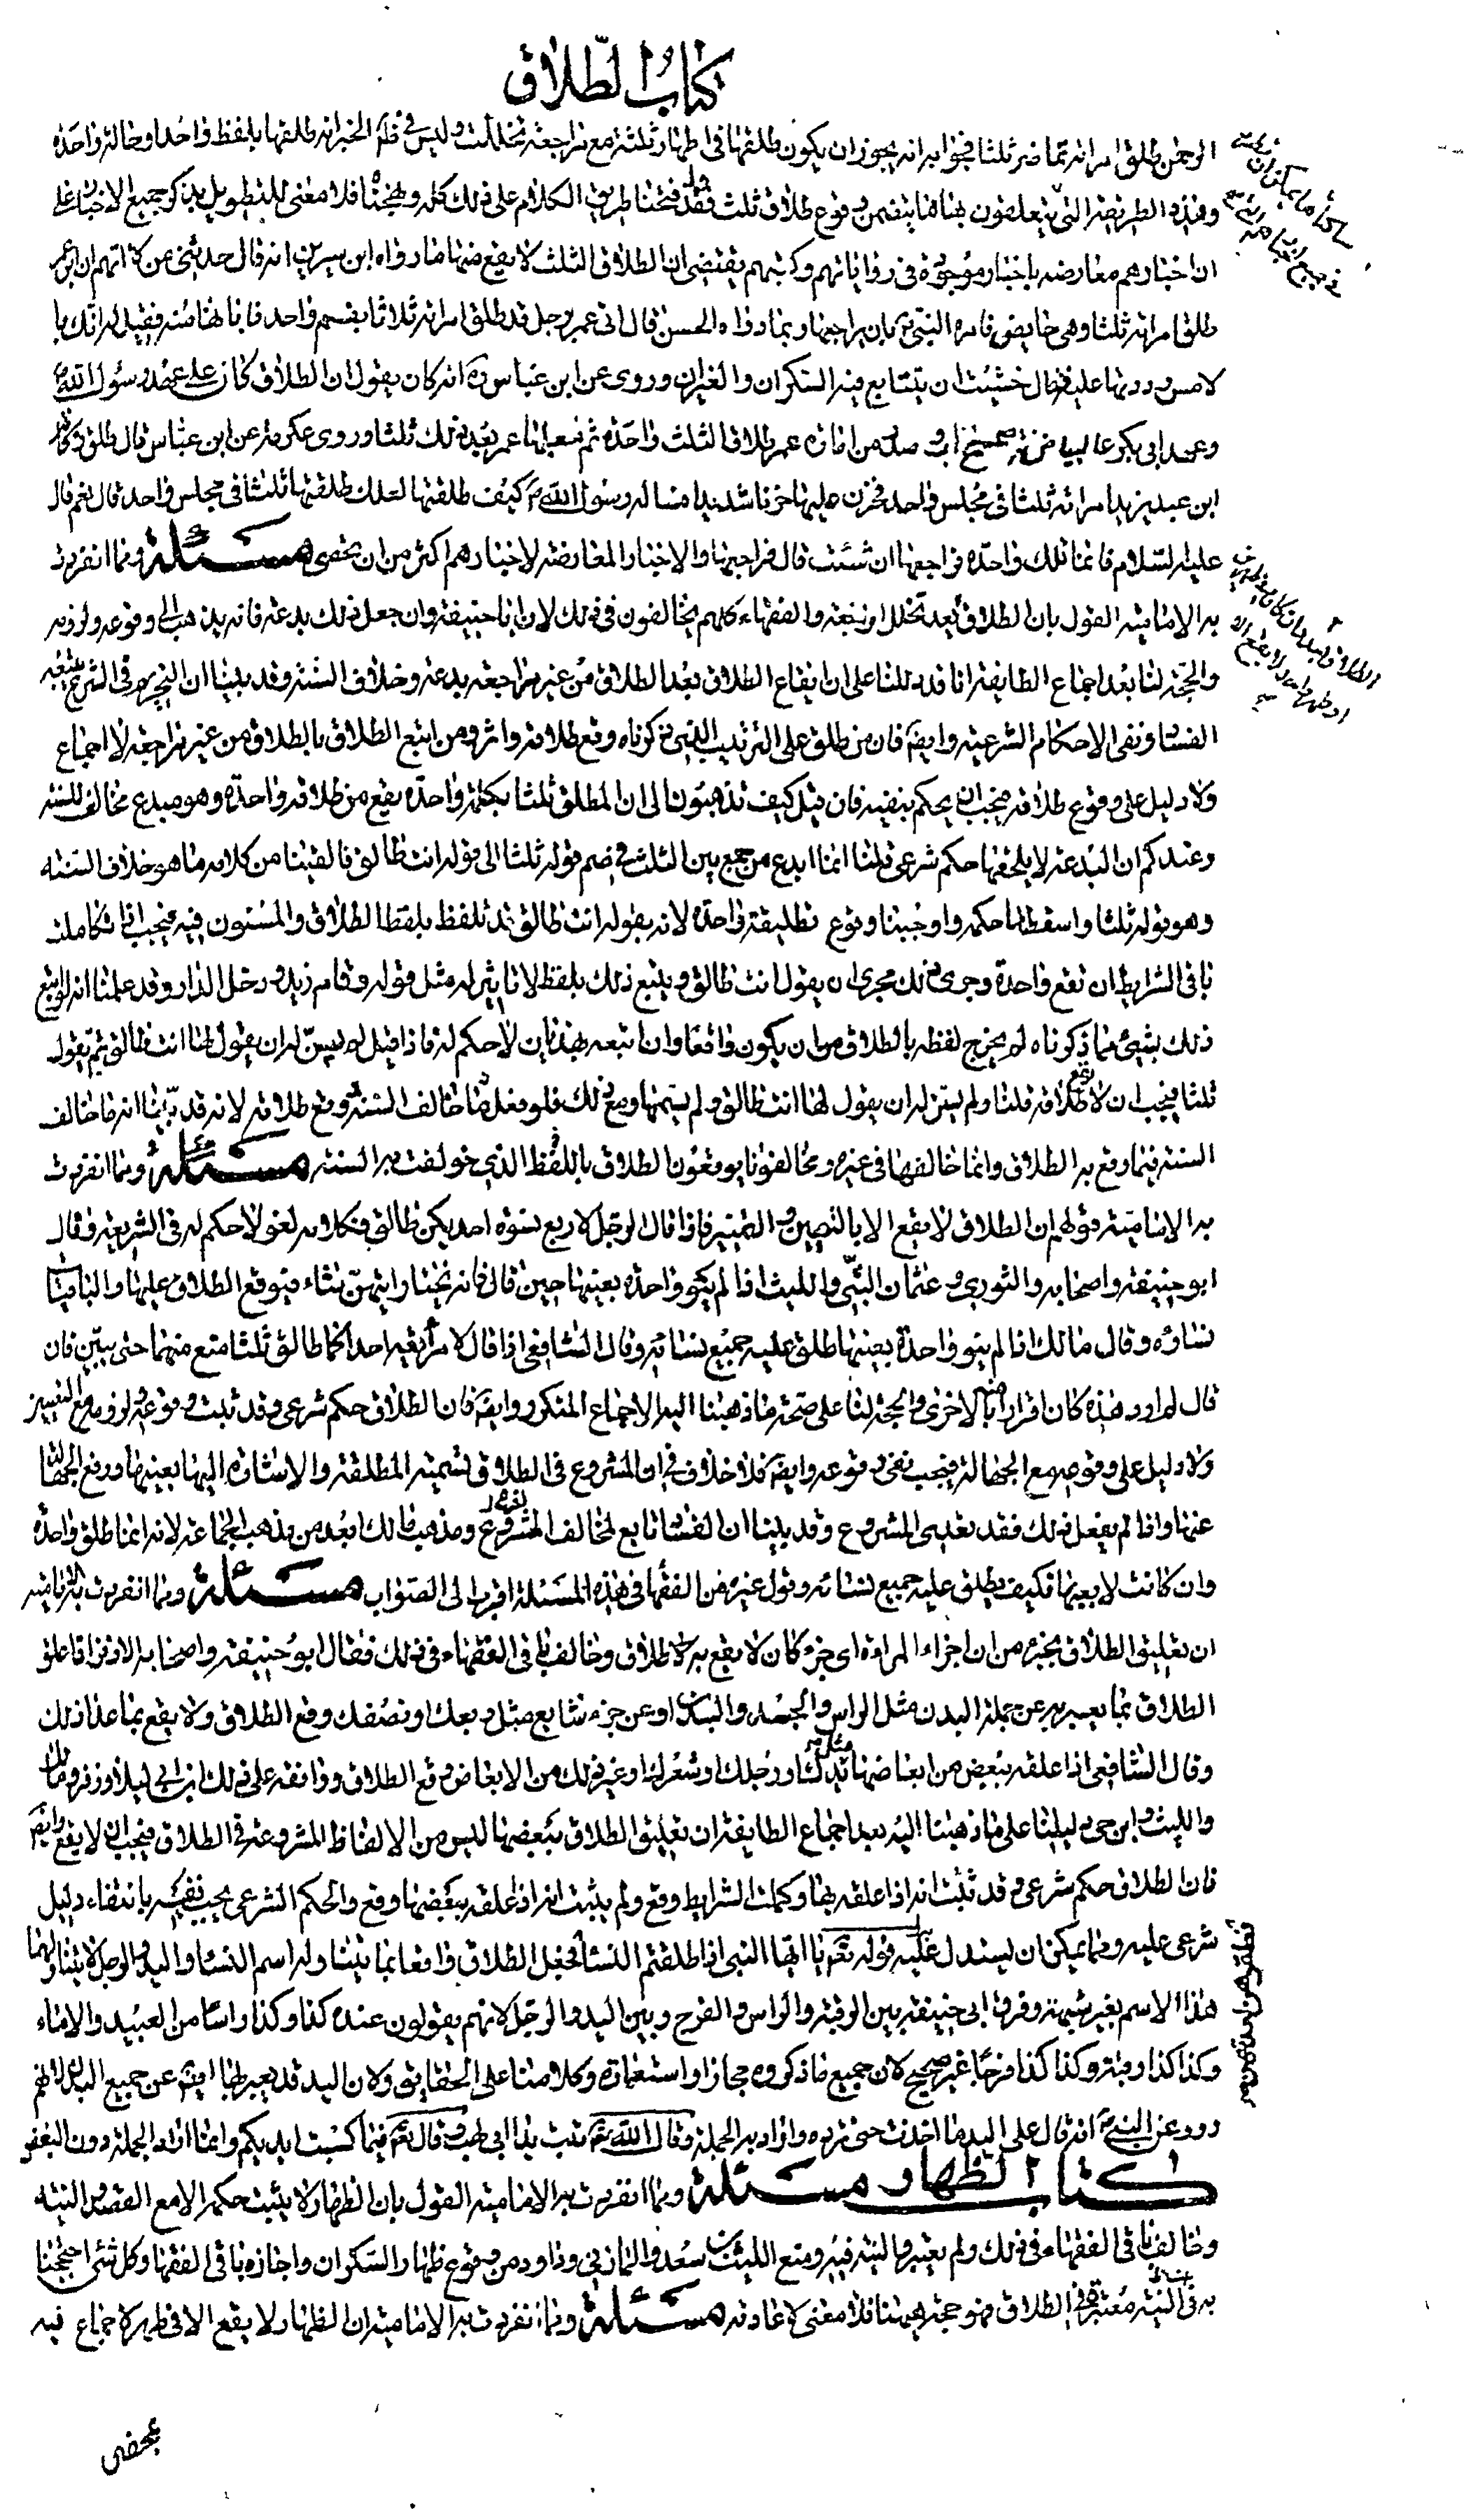 كتاب الطلاق
الرحمن طلق امراته تماضر ثلثا فجوابه انه يجوز ان يكون طلقها في اطهار ثلثة مع مراجعة تخللت وليس في ظاهر الخبر انه طلقها بلفظ واحد او حالة واحدة
وهذه الطريقة التي يتعلقون بها مما يتضمن وقوع طلاق ثلث فقد فتحنا طريق الكلام على ذلك كله ونهجناه فلا معنى للتطويل بذكر جميع الاخبار على
ان اخبارهم معارضة باخبار موجودة في رواياتهم وكتبهم يقتضي ان الطلاق الثلث لا يقع منها ما رواه ابن سيرين انه قال حدثني من لا اتهم ان ابن عمر
طلق امراته ثلثا وهي حايض فامره النبي ص بان يراجعها وبما رواه الحسن قال اتى عمر برجل قد طلق امراته ثلاثا بفم واحد فابانها منه فقيل له انك با
لامس رددتها عليه فقال خشيت ان يتتابع فيه السكران والغيران وروى عن ابن عباس ره انه كان يقول ان الطلاق كان على عهد رسول الله ص
وعهد ابي بكر وصدر من امارة عمر طلاق الثلث واحدة ثم جعلها عمر بعد ذلك ثلثا وروى عكرمة عن ابن عباس قال طلق ركانة
ابن عبد يزيد امراته ثلثا في مجلس واحد فحزن عليها حزنا شديدا فساله رسول الله ص كيف طلقتها لعلك طلقتها ثلثا في مجلس واحد قال نعم قال
عليه السلام فانما تلك واحدة فراجعها ان شئت قال فراجعها والاخبار المعارضة لاخبارهم اكثر من ان تحصى مسئلة ومما انفردت
به الامامية القول بان الطلاق بعد تخلل الرجعة والفقهاء كلهم يخالفون في ذلك لان ابا حنيفة وان جعل ذلك بدعة فانه يذهب الى وقوعه ولزومه
والحجة لنا بعد اجماع الطايفة انا قد دللنا على ان ايقاع الطلاق بعد الطلاق من غير مراجعة بدعة وخلاف السنة وقد بينا ان التحريم في الشريعة يتبعه
الفساد ونفى الاحكام الشرعية وايضا فان من طلق على الترتيب الذي ذكرناه وقع طلاقه واثر ومن اتبع الطلاق بالطلاق من غير مراجعة لا اجماع
ولا دليل على وقوع طلاقه فيجب ان يحكم بنفيه فان قيل كيف تذهبون الى ان المطلق ثلثا بكلمة واحدة يقع من طلاقه واحدة وهو مبدع مخالف للسنة
وعندكم ان البدعة لا يلحقها حكم شرعي قلنا انما ابدع من جمع بين الثلث في ضم قوله ثلثا الى قوله انت طالق فالغينا من كلامه ما هو خلاف السنة
وهو قوله ثلثا واسقطنا حكمه واوجبنا وقوع تطليقة واحدة لانه بقوله انت طالق قد تلفظ بلفظ الطلاق والمسنون فيه فيجب اذا تكاملت
باقي الشرايط ان تقع واحدة وجرى ذلك مجرى ان يقول انت طالق ويتبع ذلك بلفظ لا تاثير له مثل قوله وقام زيد ودخل الدار وقد علمنا انه لو اتبع
ذلك بشيء مما ذكرناه لم يخرج لفظه بالطلاق من ان يكون واقعا وان اتبعه بهذيان لا حكم له فاذا قيل لم يسن له ان يقول لها انت طالق ثم يقول
ثلثا فيجب ان لا يقع طلاقه قلنا ولم يسن له ان يقول لها انت طالق ولم يشتمها ومع ذلك فلو فعل ما خالف السنة وقع طلاقه لانه قد بينا انه ما خالف
السنة فيما وقع به الطلاق وانما خالفها في غيره ومخالفونا يوقعون الطلاق باللفظ الذي خولفت به السنة مسئلة ومما انفردت
به الامامية قولهم ان الطلاق لا يقع الا بالتعيين والتمييز فاذا قال الرجل لاربع نسوة احديكن طالق فكلامه لغو لا حكم له في الشريعة وقال
ابو حنيفة واصحابه والثوري وعثمان البتي والليث اذا لم ينو واحدة بعينها حين قال فانه يختار ايتهن شاء فيوقع الطلاق عليها والباقيات
نساؤه وقال مالك اذا لم ينو واحدة بعينها طلق عليه جميع نسائه وقال الشافعي اذا قال لامرأتيه احداكما طالق ثلثا منع منهما حتى يبين فان
قال لم ارد هذه كان اقرارا منه بالاخرى والحجة لنا على صحة ما ذهبنا اليه الاجماع المتكرر وايضا فان الطلاق حكم شرعي وقد ثبت وقوعه ولزومه مع التمييز
ولا دليل على وقوعه مع الجهالة فيجب نفي وقوعه وايضا فلا خلاف في ان المشروع في الطلاق تسمية المطلقة والاشارة اليها بعينها ورفع الجهالة
عنها واذا لم يفعل ذلك فقد تعدى المشروع وقد بينا ان الفساد تابع لمخالف المشروع ومذهب مالك ابعد من مذهب الجماعة لانه انما طلق واحدة
وان كانت لا بعينها فكيف يطلق عليه جميع نسائه وقول غيره من الفقهاء في هذه المسئلة اقرب الى الصواب مسئلة ومما انفردت به الامامية
ان تعليق الطلاق بجزء من اجزاء المراة اي جزء كان لا يقع به طلاق وخالف باقي الفقهاء في ذلك فقال ابو حنيفة واصحابه الا زفر اذا علق
الطلاق بما يعبر به عن جملة البدن مثل الراس والجسد والبدن او عن جزء شايع مثل ربعك او نصفك وقع الطلاق ولا يقع بما عدا ذلك
وقال الشافعي اذا علقه ببعض من ابعاضها مثل يدك او رجلك او شعرك او غير ذلك من الابعاض وقع الطلاق ووافقه على ذلك ابن ابي ليلى وزفر ومالك
والليث وابن حي دليلنا على ما ذهبنا اليه بعد اجماع الطايفة ان تعليق الطلاق ببعضها ليس من الالفاظ المشروعة في الطلاق فيجب ان لا يقع وايضا
فان الطلاق حكم شرعي وقد ثبت انه اذا علقه بها وكملت الشرايط وقع ولم يثبت انه اذا علقه ببعضها وقع والحكم الشرعي يجب نفيه بانتفاء دليل
شرعي عليه ومما يمكن ان يستدل عليه قوله تعالى يا ايها النبي اذا طلقتم النساء فجعل الطلاق واقعا بما يتناوله اسم النساء واليد والرجل لا يتناولهما
هذا الاسم بغير شبهة وفرق ابي حنيفة بين الرقبة والراس والفرج وبين اليد والرجل لانهم يقولون عنده كذا وكذا راسا من العبيد والاماء
وكذا كذا رقبة وكذا كذا فرجا غير صحيح لان جميع ما ذكروه مجاز واستعارة وكلامنا على الحقايق ولان اليد قد يعبر بها ايضا عن جميع البدن لانهم
رووا عن النبي ص انه قال على اليد ما اخذت حتى ترده واراد به الجملة وقال الله تعالى تبت يدا ابي لهب وقال تعالى فبما كسبت ايديكم وانما اراد الجملة دون البعض
كتاب الظهار مسئلة ومما انفردت به الامامية القول بان الظهار لا يثبت حكمه الا مع القصد والنية
وخالف باقي الفقهاء في ذلك ولم يعتبروا النية فيه ومنع الليث بن سعد والمازني وداود من وقوع ظهار السكران واجازه باقي الفقهاء وكل شيء احتججنا
به في النية معتبرة في الطلاق فهو حجة هيهنا فلا معنى لاعادته مسئلة ومما انفردت به الامامية ان الظهار لا يقع الا في طهر لا جماع فيه